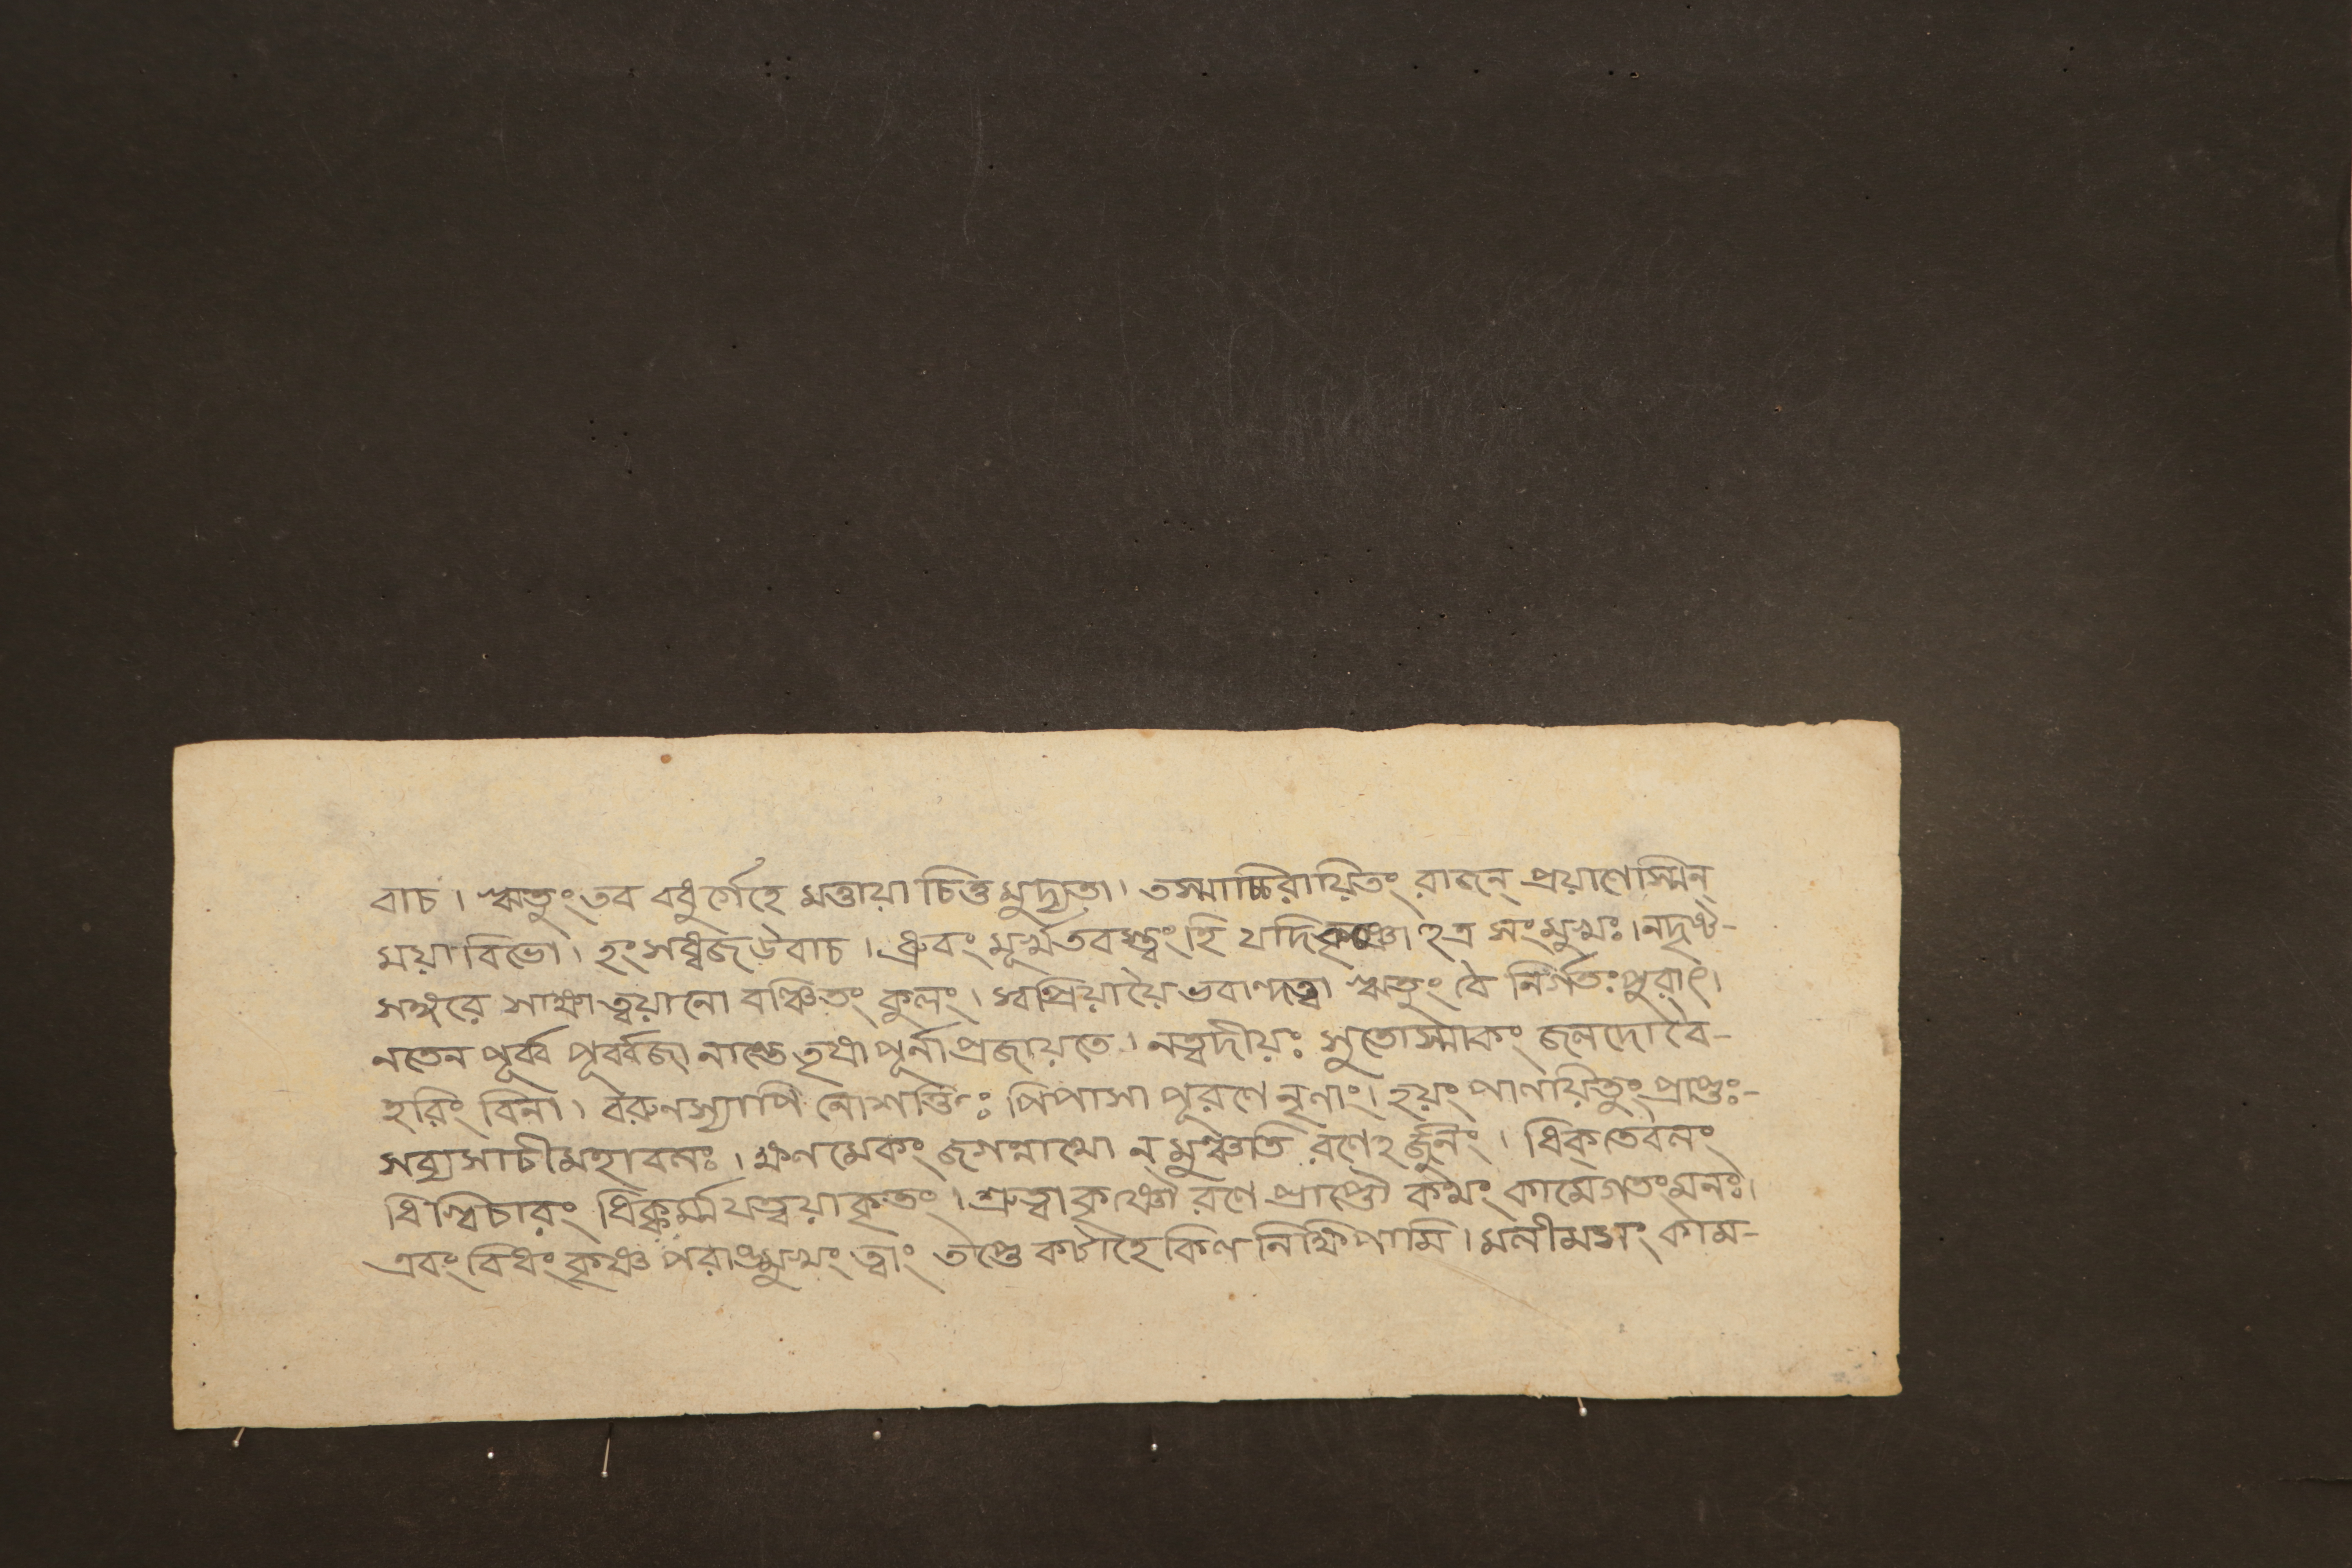 বাচ। ঋতুং তব বধুর্গেহে মত্তায়া চিত্ত মুদ্যতা। তস্মাচ্চিরায়িতং রাজন্ প্রয়াণেস্মিন্
ময়া বিভো। হংসধ্বজ উবাচ। ধ্রুবং মূর্খতবস্ত্বং হি যদি কৃষ্ণোঽত্র সংমুখঃ। নদৃষ্ট-
সঙ্গরে সাক্ষাত্ত্বয়ানো বঞ্চিতং কুলং। স্বপ্রিয়ায়ৈ ভবান্দত্ত্বা ঋতুং বৈ নির্গতঃ পুরাৎ।
নতেন পূর্ব্ব পূর্ব্বজা নান্তে তৃপ্রা পূর্না প্রজায়তে। নত্বদীয়ঃ সুতোস্মাকং জলদো বৈ-
হরিং বিনা। বরুনস্যাপি নোশক্তিঃ পিপাসা পূরণে নৃনাং। হয়ং পালয়িতুং প্রাপ্তঃ-
সব্যসাচী মহাবলঃ। ক্ষণমেকং জগন্নাথো ন মুঞ্চতি রণেঽর্জুনং। ধিক্ তে বলং
ধিগ্বিচারং ধিক্কর্ম্ম যত্ত্বয়া কৃতং। শ্রুত্বা কৃষ্ণৌ রণে প্রাপ্তৌ কথং কামে গতং মনঃ।
এবং বিধং কৃষ্ণ পরাঙ্মুখং ত্বাং তপ্তে কটাহে কিল নিক্ষিপামি। মলীমসং কাম-